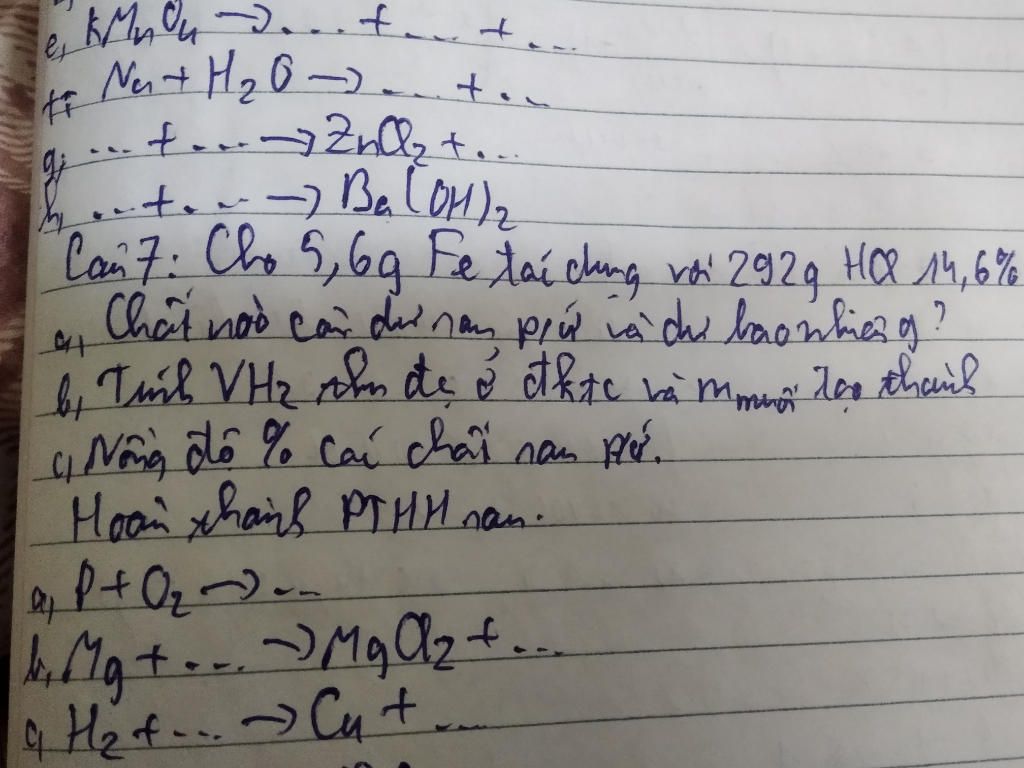 e, KMnO4 → ... + ... + ...
f, Na + H2O → ... + ...
g, ... + ... → ZnCl2 + ...
h, ... + ... → Ba(OH)2
Câu 7: Cho 5,6g Fe tác dụng với 292g HCl 14,6%
a, Chất nào còn dư sau p/ứ và dư bao nhiêu g?
b, Tính VH2 thu đc ở đktc và mmuối tạo thành
c, Nồng độ % các chất sau p/ứ.
Hoàn thành PTHH sau.
a, P + O2 → ...
b, Mg + ... → MgCl2 + ...
c, H2 + ... → Cu + ...